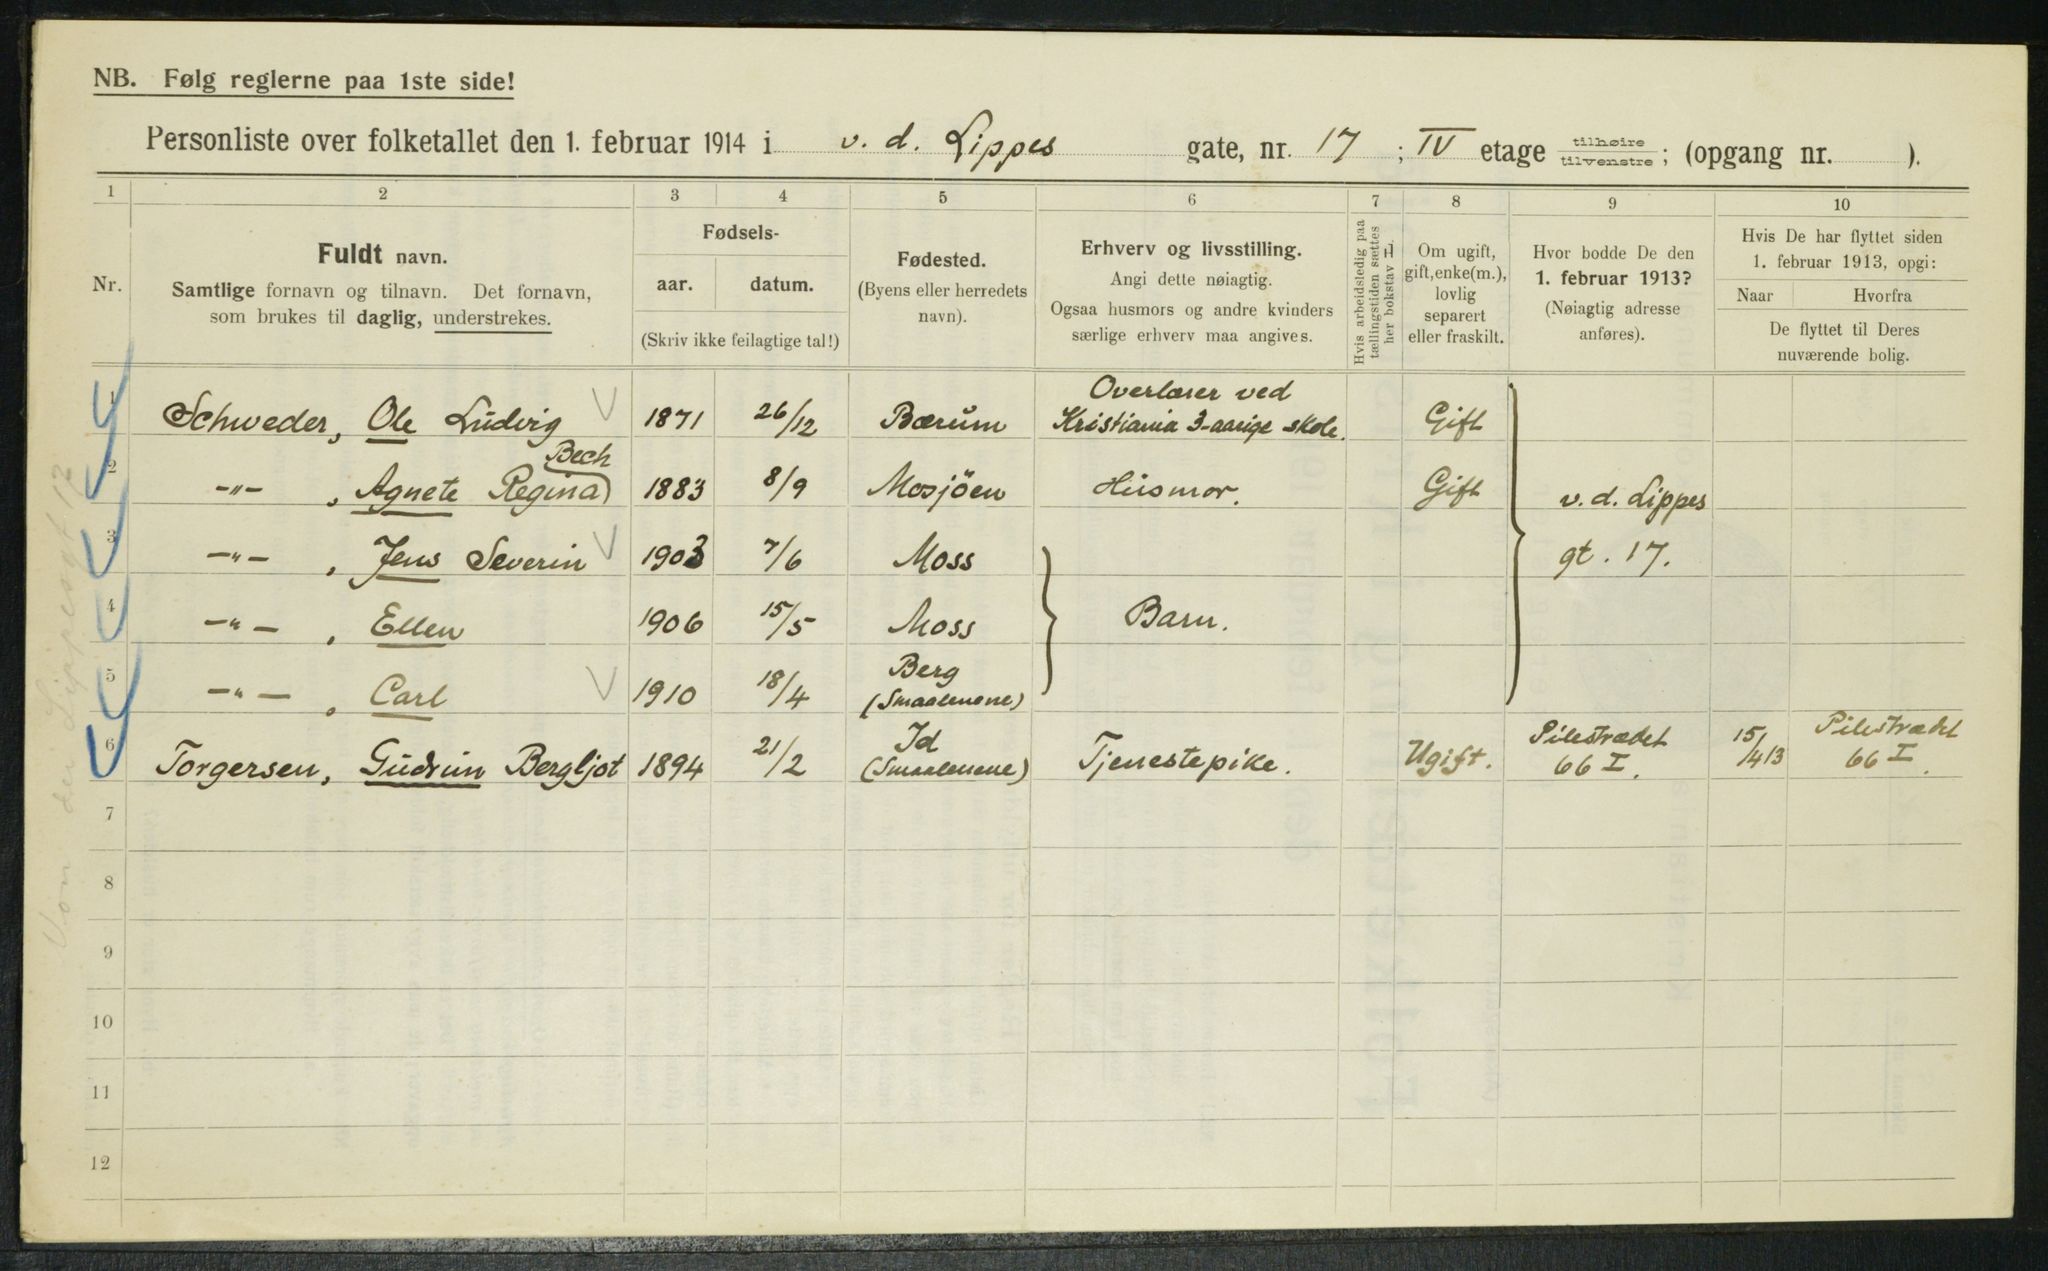 NB. Følg reglerne paa 1ste side!
Personliste over folketallet den 1. februar 1914 i v. d. Lippes gate, nr. 17 ; IV etage tilhøire tilvenstre ; (opgang nr. ).
1 2 3 4 5 6 7 8 9 10
Nr.
Fuldt navn.
Samtlige fornavn og tilnavn. Det fornavn,
som brukes til daglig, understrekes.
Fødsels-
aar. datum.
(Skriv ikke feilagtige tal!)
Fødested.
(Byens eller herredets
navn).
Erhverv og livsstilling.
Angi dette nøiagtig.
Ogsaa husmors og andre kvinders
særlige erhverv maa angives.
Hvis arbeidsledig paa
tællingstiden sættes
her bokstav L
Om ugift,
gift, enke(m.),
lovlig
separert
eller fraskilt.
Hvor bodde De den
1. februar 1913?
(Nøiagtig adresse
anføres).
Hvis De har flyttet siden
1. februar 1913, opgi:
Naar Hvorfra
De flyttet til Deres
nuværende bolig.
1 Schweder, Ole Ludvig 1871 26/12 Bærum Overlærer ved
Kristiania 3-aarige skole. Gift
2 -"- , Agnete Regina Bech 1883 8/9 Mosjöen Husmor. Gift v. d. Lippes
3 -"- , Jens Severin 1903 7/6 Moss gt. 17.
4 -"- , Ellen 1906 15/5 Moss Barn.
5 -"- , Carl 1910 18/4 Berg
(Smaalenene)
6 Torgersen, Gudrun Bergljot 1894 21/2 Id
(Smaalenene) Tjenestepike. Ugift. Pilestrædet
66 I. 15/4 13 Pilestrædet
66 I.
7
8
9
10
11
12
Von der Lippesgt 17